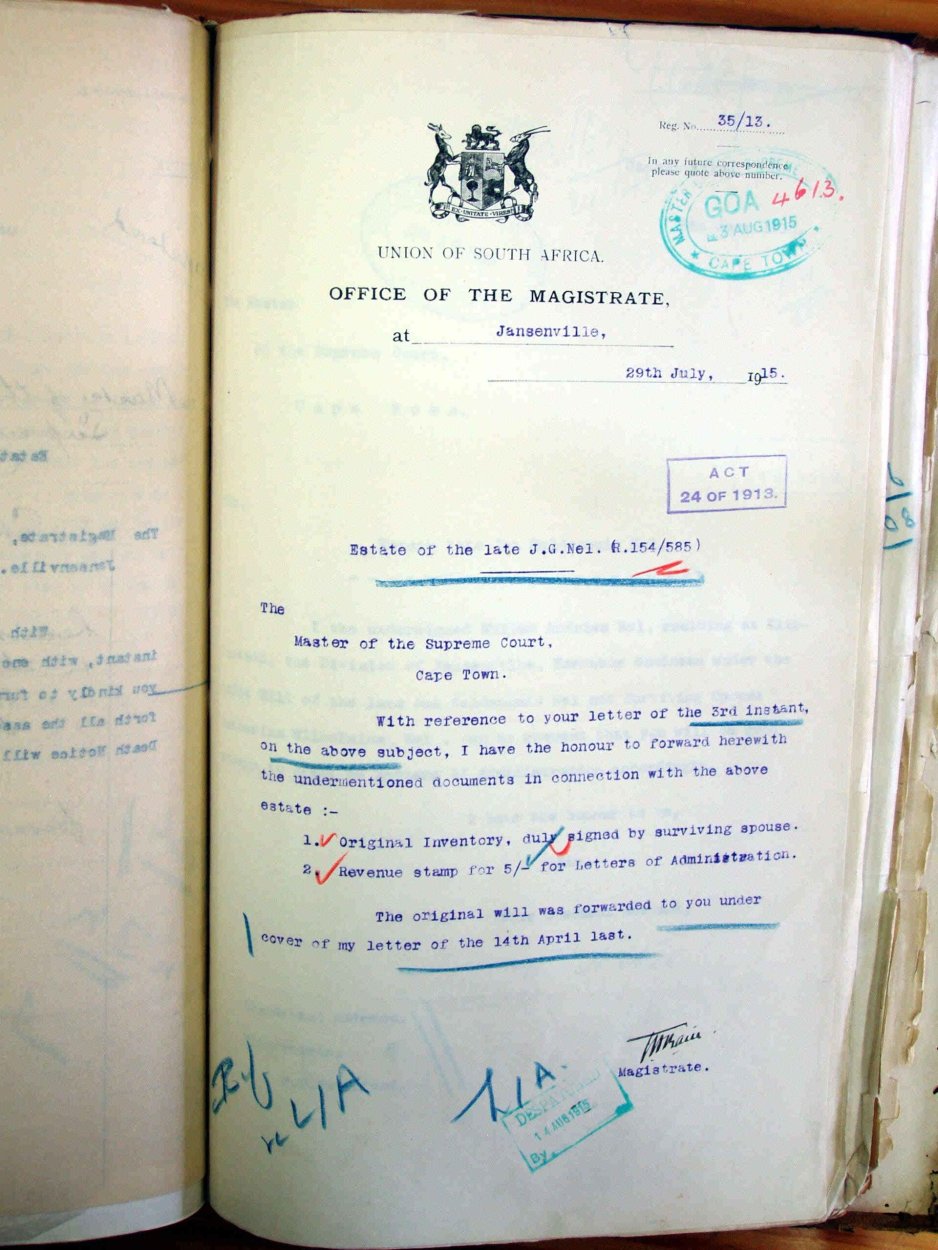 Reg. No. 35/13.
In any future correspondence
please quote above number.
MASTER
GOA 4613.
3 AUG 1915
★ CAPE TOWN ★
EX UNITATE VIRES
UNION OF SOUTH AFRICA.
OFFICE OF THE MAGISTRATE,
at Jansenville,
29th July, 1915.
ACT
24 OF 1913.
Estate of the late J.G.Nel. (R.154/585)
The
Master of the Supreme Court,
Cape Town.
With reference to your letter of the 3rd instant,
on the above subject, I have the honour to forward herewith
the undermentioned documents in connection with the above
estate :-
1. Original Inventory, duly signed by surviving spouse.
2. Revenue stamp for 5/- for Letters of Administration.
The original will was forwarded to you under
cover of my letter of the 14th April last.
Magistrate.
L/A
L/A.
DESPATCHED
14 AUG 1915
By